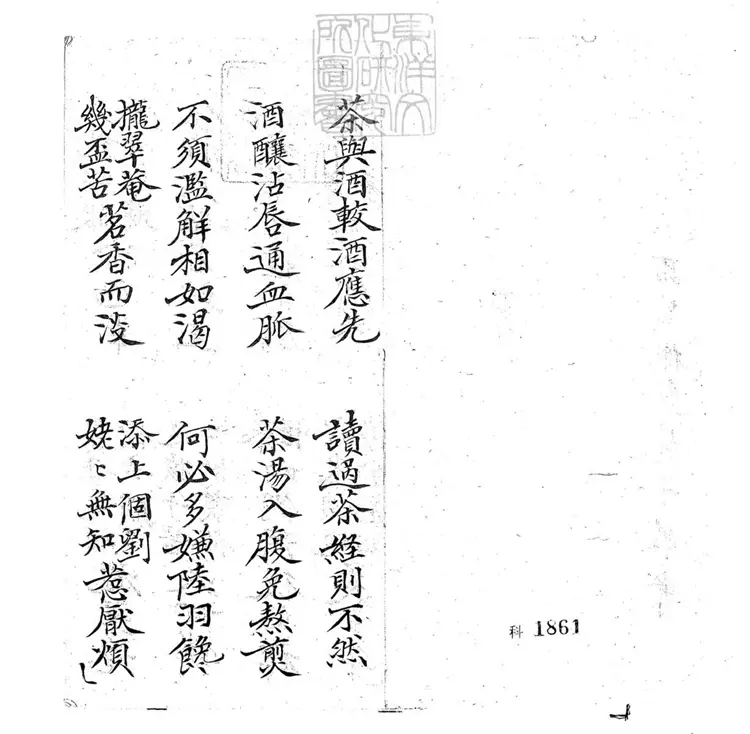 東洋文
化研究
所圖書
茶與酒較酒應先
讀過茶經則不然
酒釀沾唇通血脈
茶湯入腹免熬煎
不須濫解相如渴
何必多嫌陸羽饞
攏翠菴
幾盃苦
茗香而淡
添上個劉
姥〻無知
惹厭煩
科 1861